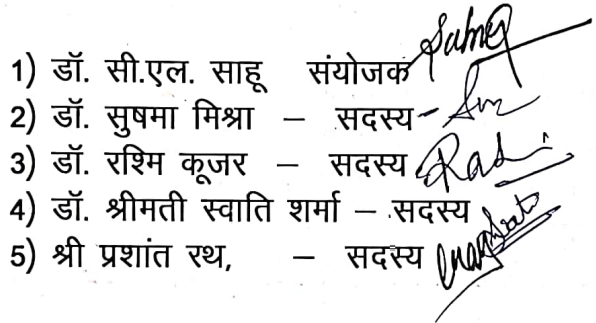 1) डॉ. सी.एल. साहू संयोजक
2) डॉ. सुषमा मिश्रा – सदस्य
3) डॉ. रश्मि कूजर – सदस्य
4) डॉ. श्रीमती स्वाति शर्मा – सदस्य
5) श्री प्रशांत रथ, – सदस्य